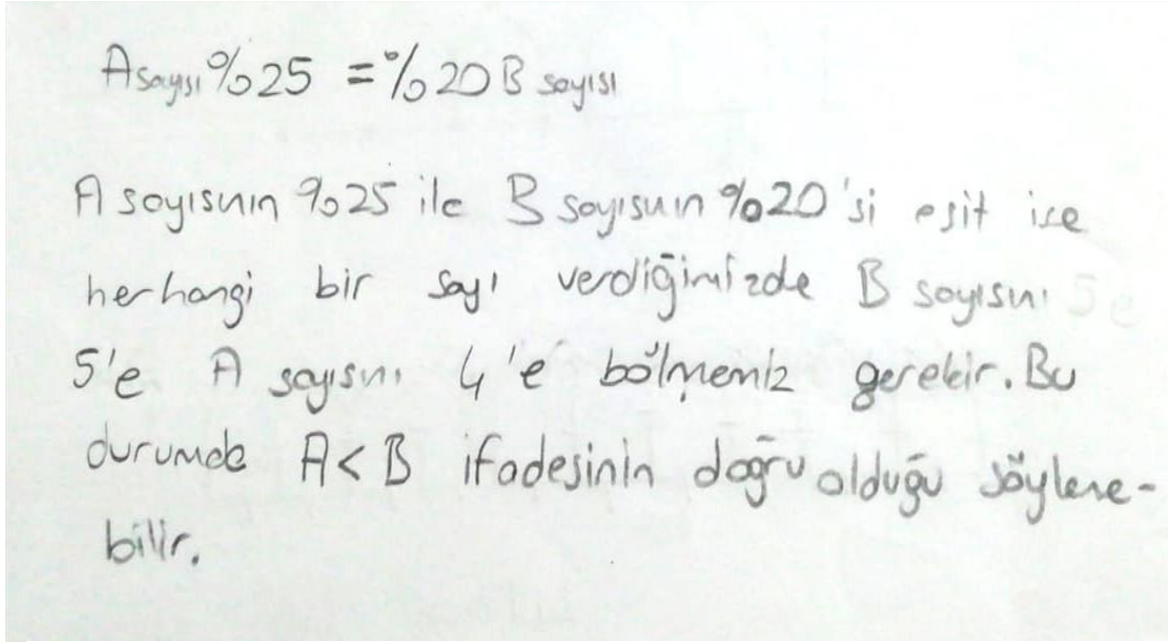 A sayısı %25 = %20 B sayısı
A sayısının %25 ile B sayısının %20'si eşit ise
herhangi bir sayı verdiğimizde B sayısını 5e
5'e A sayısını 4'e bölmemiz gerekir. Bu
durumda A < B ifadesinin doğru olduğu söylene-
bilir.